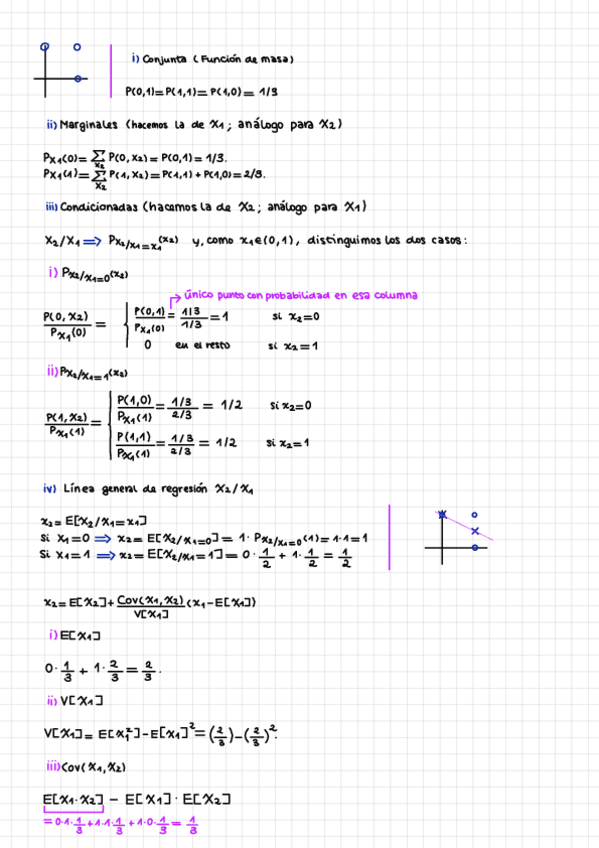 i) Conjunta (Función de masa)
P(0,1)=P(1,1)=P(1,0)= 1/3
ii) Marginales (hacemos la de X1; análogo para X2)
PX1(0)= ∑X2 P(0,X2)=P(0,1)=1/3.
PX1(1)= ∑X2 P(1,X2)=P(1,1)+P(1,0)=2/3.
iii) Condicionadas (hacemos la de X2; análogo para X1)
X2/X1 ⟹ PX2/X1=x1(x2) y, como x1∈(0,1), distinguimos los dos casos:
i) PX2/X1=0(x2)
único punto con probabilidad en esa columna
P(0,X2)/PX1(0) = { P(0,1)/PX1(0) = 1/3 / 1/3 = 1 si x2=0
0 en el resto si x2=1
ii) PX2/X1=1(x2)
P(1,X2)/PX1(1) = { P(1,0)/PX1(1) = 1/3 / 2/3 = 1/2 si x2=0
P(1,1)/PX1(1) = 1/3 / 2/3 = 1/2 si x2=1
iv) Línea general de regresión X2/X1
x2= E[X2/X1=x1]
Si X1=0 ⟹ x2= E[X2/X1=0]= 1·PX2/X1=0(1)=1·1=1
Si X1=1 ⟹ x2= E[X2/X1=1]= 0·1/2 + 1·1/2 = 1/2
x2=E[X2]+ Cov(X1,X2)/V[X1] (x1-E[X1])
i) E[X1]
0·1/3 + 1·2/3 = 2/3.
ii) V[X1]
V[X1]= E[X1²]-E[X1]²=(2/3)-(2/3)².
iii) Cov(X1,X2)
E[X1·X2] - E[X1]·E[X2]
=0·1·1/3+1·1·1/3+1·0·1/3=1/3